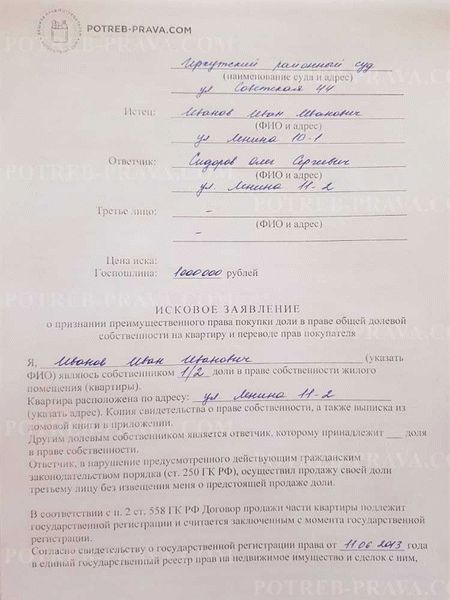 POTREB-PRAVA.COM
Иркутский районный суд
(наименование суда и адрес)
ул Советская 44
Истец: Иванов Иван Иванович
(ФИО и адрес)
ул Ленина 10-1
Ответчик: Сидоров Олег Сергеевич
(ФИО и адрес)
ул. Ленина 11-2
Третье лицо: -
(ФИО и адрес)
-
Цена иска:
Госпошлина: 1000000 рублей
ИСКОВОЕ ЗАЯВЛЕНИЕ
о признании преимущественного права покупки доли в праве общей долевой
собственности на квартиру и переводе прав покупателя
Я, Иванов Иван Иванович (указать
ФИО) являюсь собственником 1/2 доли в праве собственности жилого
помещения (квартиры).
Квартира расположена по адресу: ул Ленина 11-2
(указать адрес). Копия свидетельства о праве собственности, а также выписка из
домовой книги в приложении.
Другим долевым собственником является ответчик, которому принадлежит ___ доля
в праве собственности.
Ответчик, в нарушение предусмотренного действующим гражданским
законодательством порядка (ст. 250 ГК РФ), осуществил продажу своей доли
третьему лицу без извещения меня о предстоящей продаже доли.
В соответствии с п. 2 ст. 558 ГК РФ Договор продажи части квартиры подлежит
государственной регистрации и считается заключенным с момента государственной
регистрации.
Согласно свидетельству о государственной регистрации права от 11.06 2013 года
в единый государственный реестр прав на недвижимое имущество и сделок с ним,